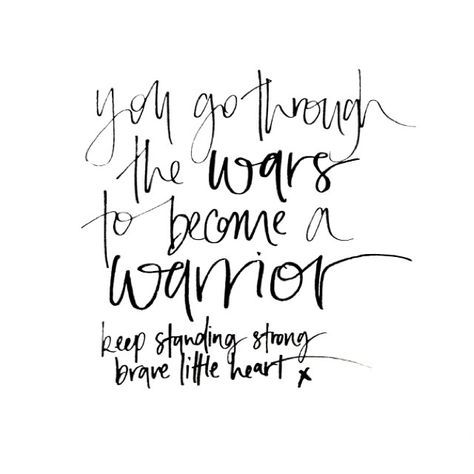 you go through
the wars
to become a
warrior
keep standing strong
brave little heart x